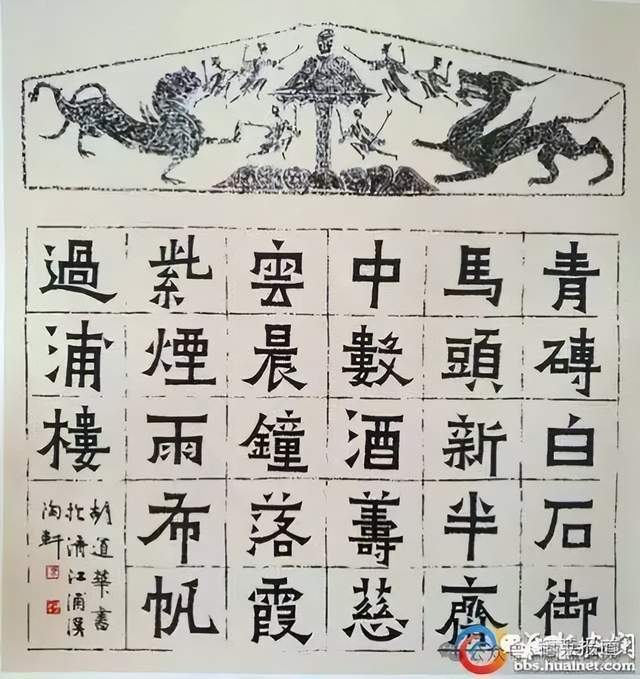 青磚白石御
馬頭新半齋
中數酒慈
雲晨鐘落霞
紫煙雨布帆
過浦樓
胡道華書
於濟江浦
陶軒
bbs.hualnet.com